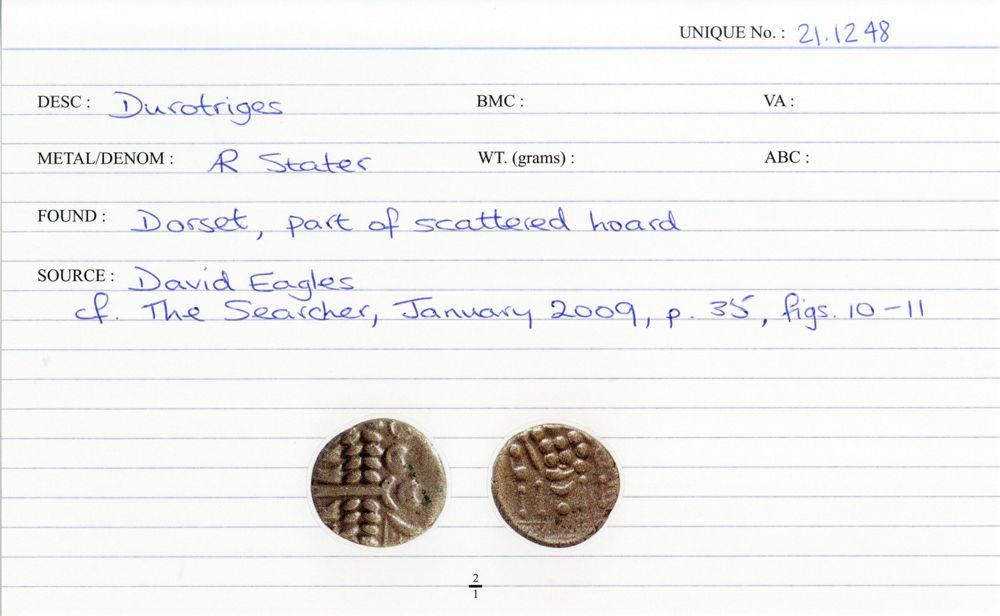 UNIQUE No. : 21.1248
DESC : Durotriges BMC : VA :
METAL/DENOM : AR Stater WT. (grams) : ABC :
FOUND : Dorset, part of scattered hoard
SOURCE : David Eagles
cf. The Searcher, January 2009, p. 35, figs. 10-11
2
1